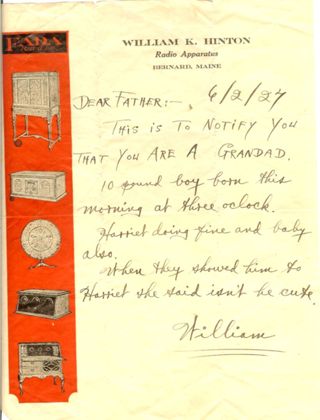 FADA
Radio
WILLIAM K. HINTON
Radio Apparatus
BERNARD, MAINE
DEAR FATHER:- 6/2/27
THIS IS TO NOTIFY YOU
THAT YOU ARE A GRANDAD.
10 pound boy born this
morning at three oclock.
Harriet doing fine and baby
also.
When they showed him to
Harriet she said isn't he cute.
William